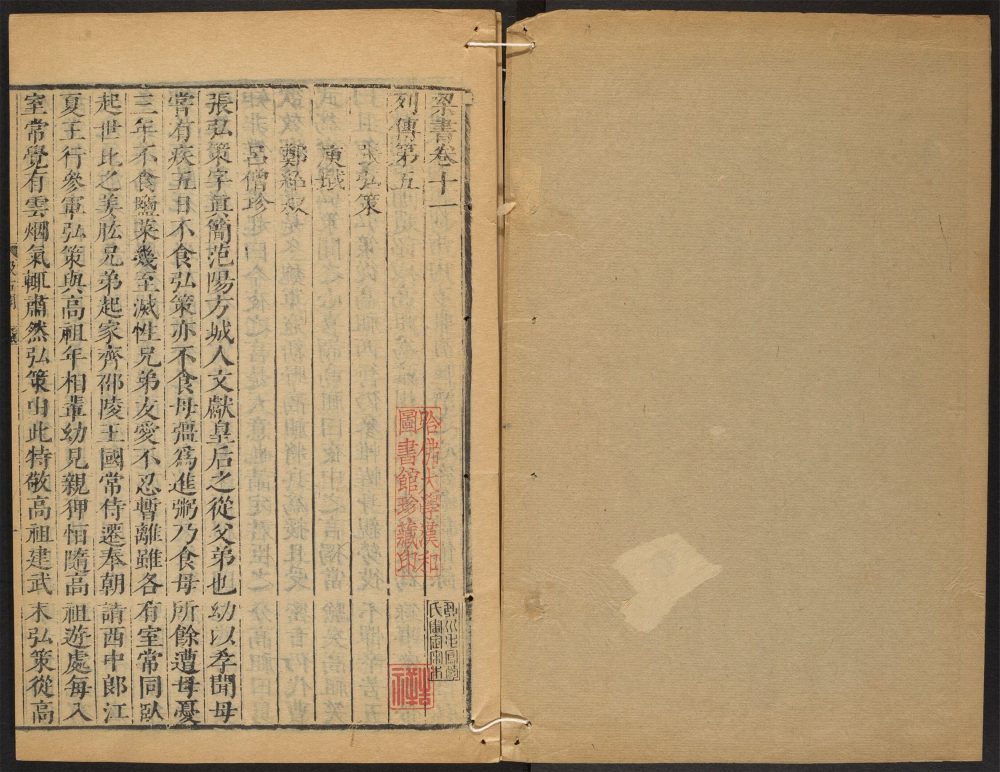 梁書卷十一
列傳第五
張弘策
庾域
鄭紹叔
呂僧珍
張弘策字眞簡范陽方城人文獻皇后之從父弟也幼以孝聞母
嘗有疾五日不食弘策亦不食母彊爲進粥乃食母所餘遭母憂
三年不食鹽菜幾至滅性兄弟友愛不忍暫離雖各有室常同臥
起世比之姜肱兄弟起家齊邵陵王國常侍遷奉朝請西中郎江
夏王行參軍弘策與高祖年相輩幼見親狎恒隨高祖遊處每入
室常覺有雲烟氣輒肅然弘策由此特敬高祖建武末弘策從高
哈佛大學漢和
圖書館珍藏印